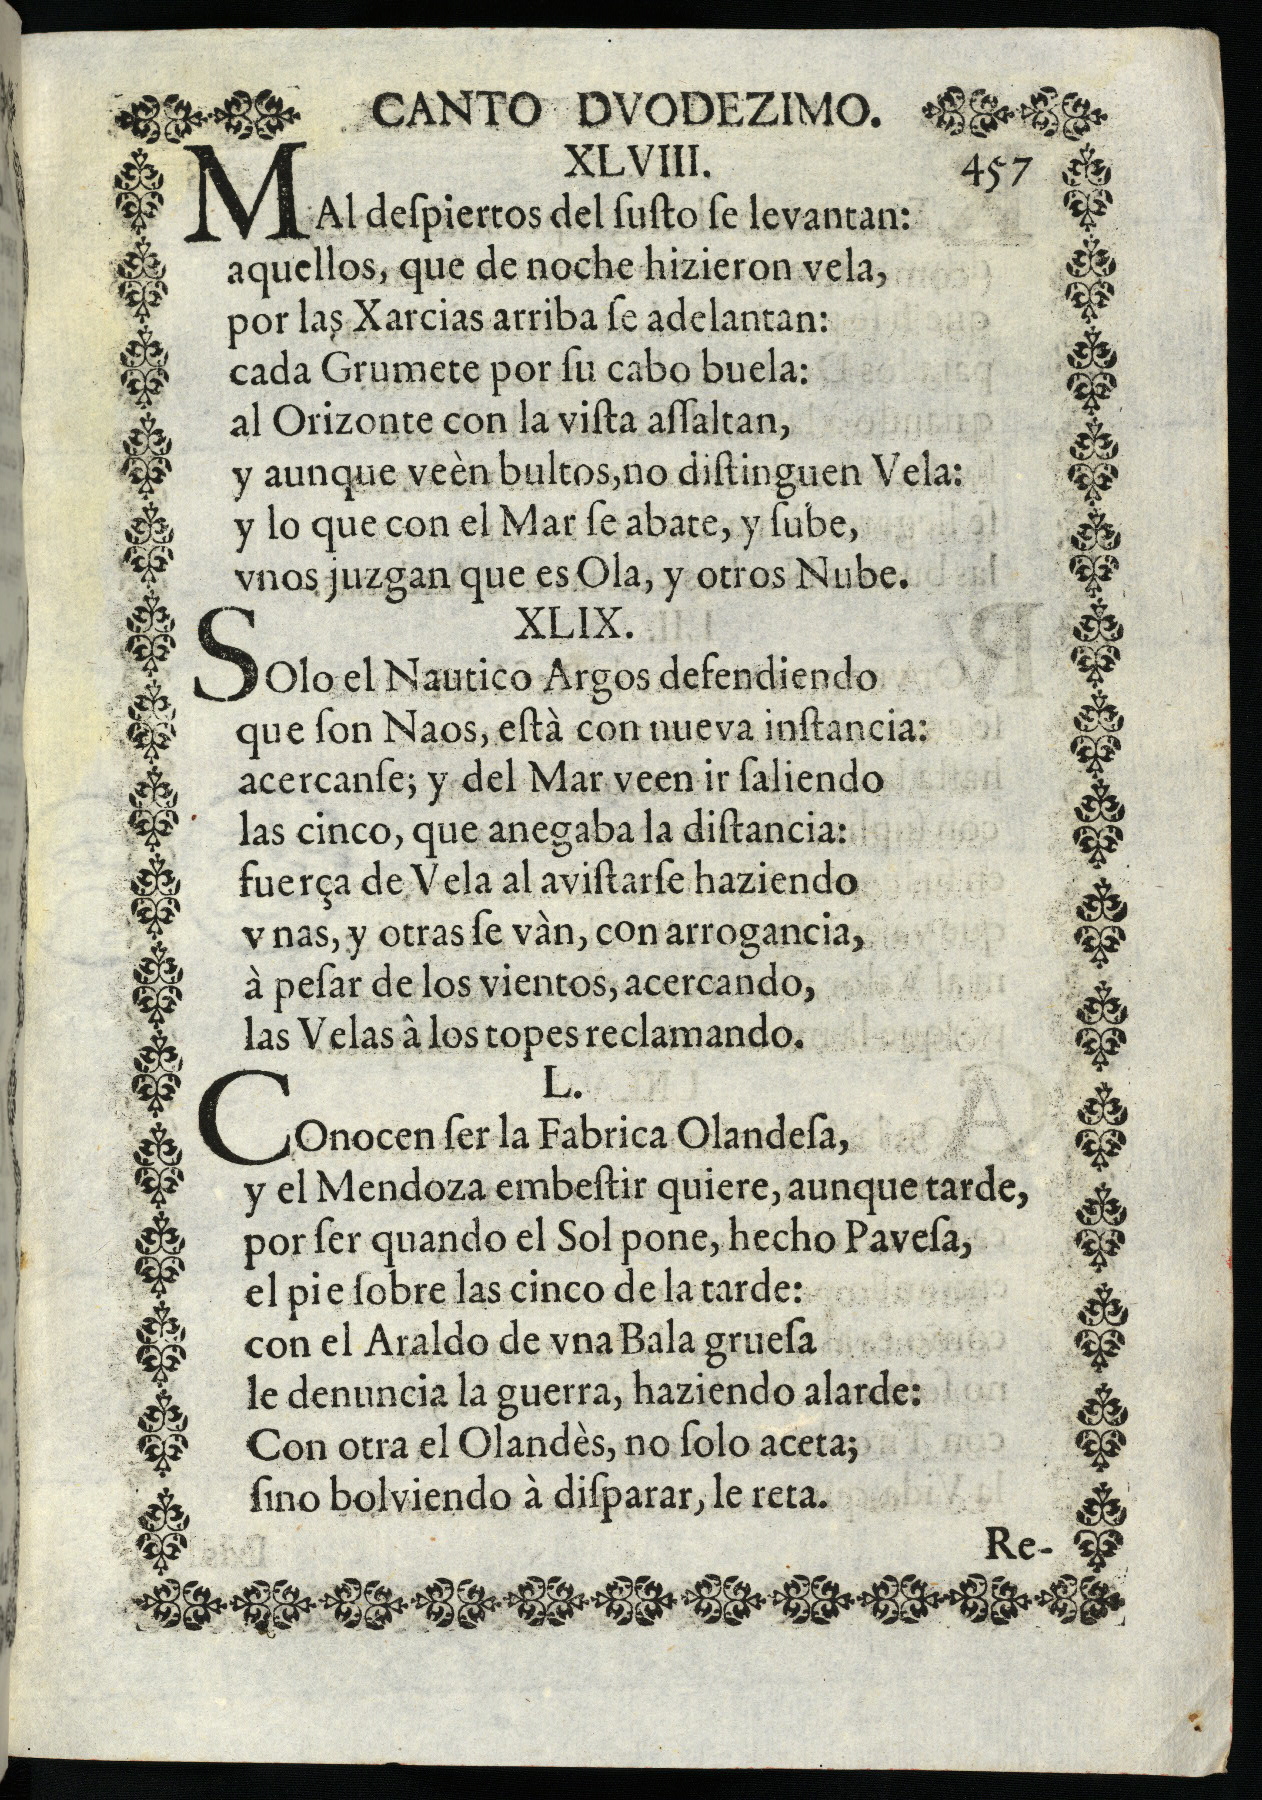 CANTO DVODEZIMO.
XLVIII. 457
MAl deſpiertos del ſuſto ſe levantan:
aquellos, que de noche hizieron vela,
por las Xarcias arriba ſe adelantan:
cada Grumete por ſu cabo buela:
al Orizonte con la viſta aſſaltan,
y aunque veèn bultos, no diſtinguen Vela:
y lo que con el Mar ſe abate, y ſube,
vnos juzgan que es Ola, y otros Nube.
XLIX.
SOlo el Nautico Argos defendiendo
que ſon Naos, eſtà con nueva inſtancia:
acercanſe; y del Mar veen ir ſaliendo
las cinco, que anegaba la diſtancia:
fuerça de Vela al aviſtarſe haziendo
vnas, y otras ſe vàn, con arrogancia,
à peſar de los vientos, acercando,
las Velas â los topes reclamando.
L.
COnocen ſer la Fabrica Olandeſa,
y el Mendoza embeſtir quiere, aunque tarde,
por ſer quando el Sol pone, hecho Paveſa,
el pie ſobre las cinco de la tarde:
con el Araldo de vna Bala grueſa
le denuncia la guerra, haziendo alarde:
Con otra el Olandès, no ſolo aceta;
ſino bolviendo à diſparar, le reta.
Re-